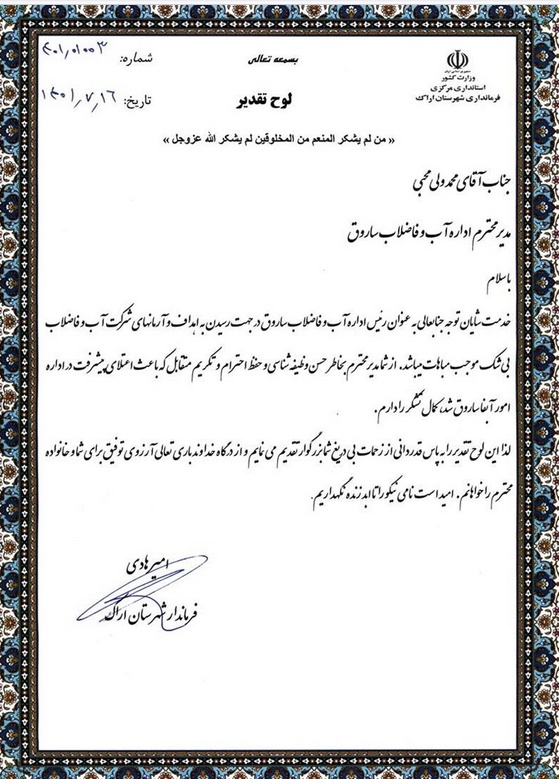 بسمه تعالی
جمهوری اسلامی ایران
وزارت کشور
استانداری مرکزی
فرمانداری شهرستان اراک
شماره:
تاریخ: ۱۴۰۱٫۷٫۱۶
لوح تقدیر
« من لم یشکر المنعم من المخلوقین لم یشکر الله عزوجل »
جناب آقای محمد ولی محبی
مدیر محترم اداره آب و فاضلاب ساروق
باسلام
خدمت شایان توجه جنابعالی به عنوان رئیس اداره آب و فاضلاب ساروق در جهت رسیدن به اهداف و آرمانهای شرکت آب و فاضلاب
بی شک موجب مباهات میباشد. از شما مدیر محترم بخاطر حسن وظیفه شناسی و حفظ احترام و تکریم متقابل که باعث اعتلای پیشرفت در اداره
امور آبفا ساروق شد، کمال تشکر را دارم.
لذا این لوح تقدیر را به پاس قدردانی از زحمات بی دریغ شما بزرگوار تقدیم می نمایم و از درگاه خداوند باری تعالی آرزوی توفیق برای شما و خانواده
محترم را خواهانم. امید است نامی نیکو را تا ابد زنده نگهداریم.
امیر هادی
فرماندار شهرستان اراک